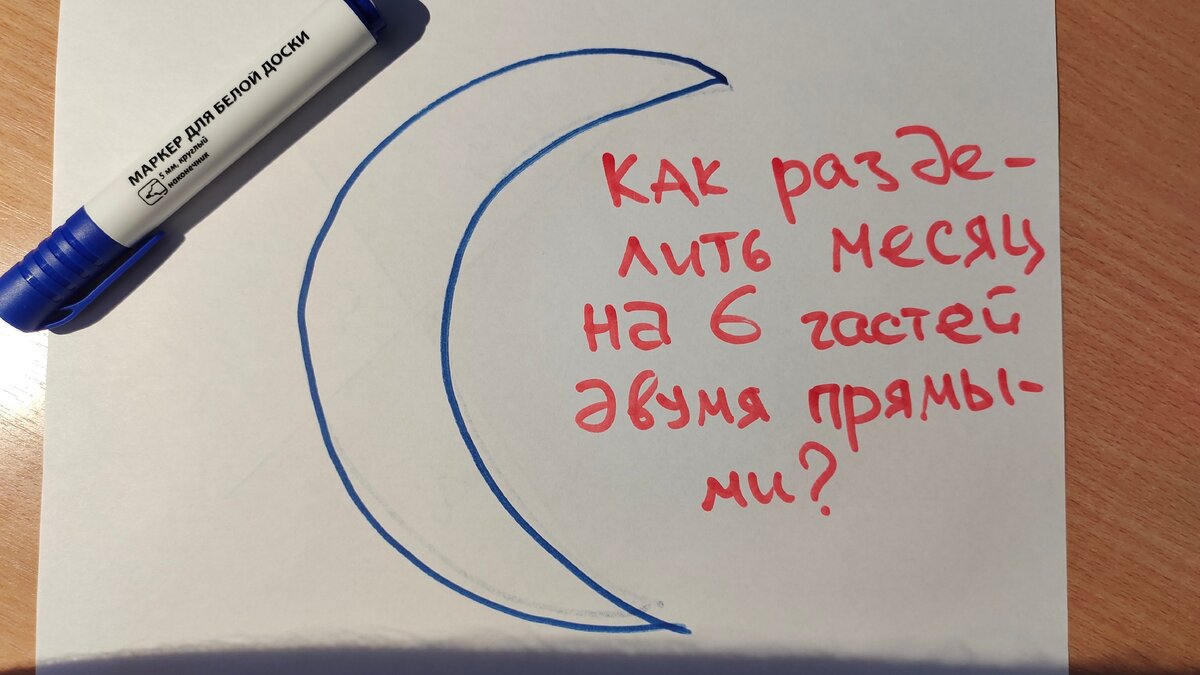 МАРКЕР ДЛЯ БЕЛОЙ ДОСКИ
5 мм, круглый
наконечник
КАК разде-
лить месяц
на 6 частей
двумя прямы-
ми?